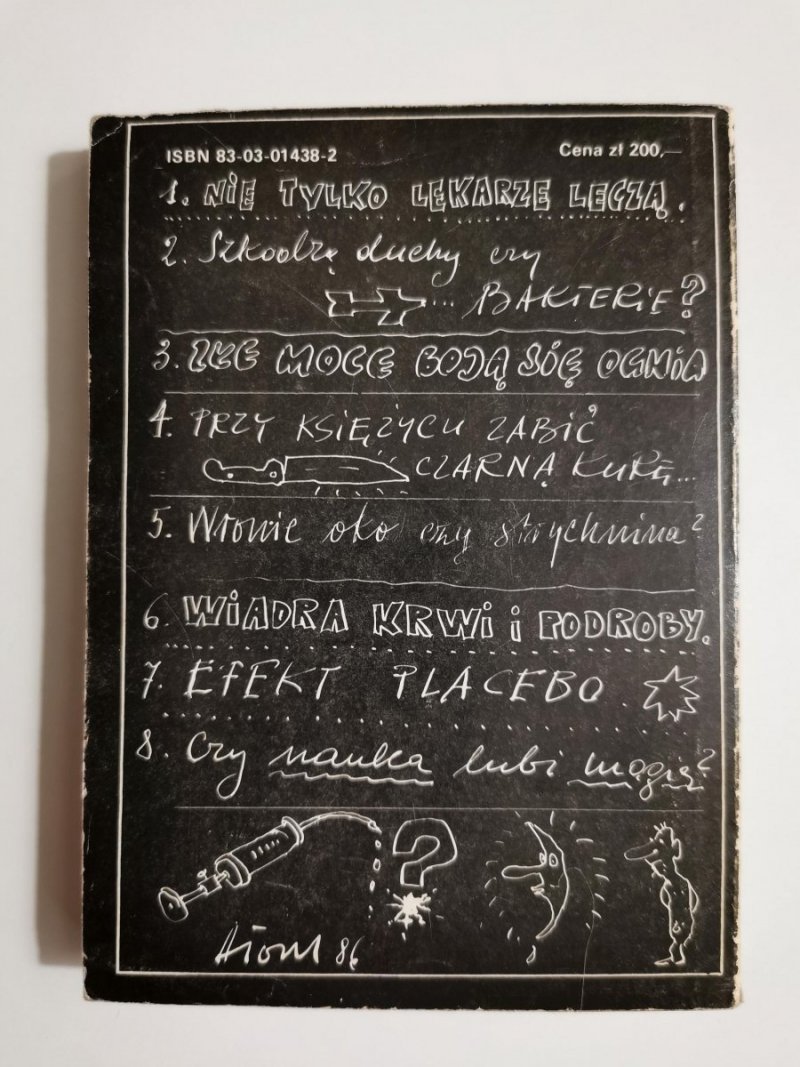 ISBN 83-03-01438-2
Cena zł 200,—
1. NIE TYLKO LEKARZE LECZĄ.
2. Szkodzą duchy czy
... BAKTERIE?
3. ZŁE MOCE BOJĄ SIĘ OGNIA
4. PRZY KSIĘŻYCU ZABIĆ
CZARNĄ KURĘ...
5. Wronie oko czy strychnina?
6. WIADRA KRWI i PODROBY.
7. EFEKT PLACEBO
8. Czy nauka lubi magię?
?
86